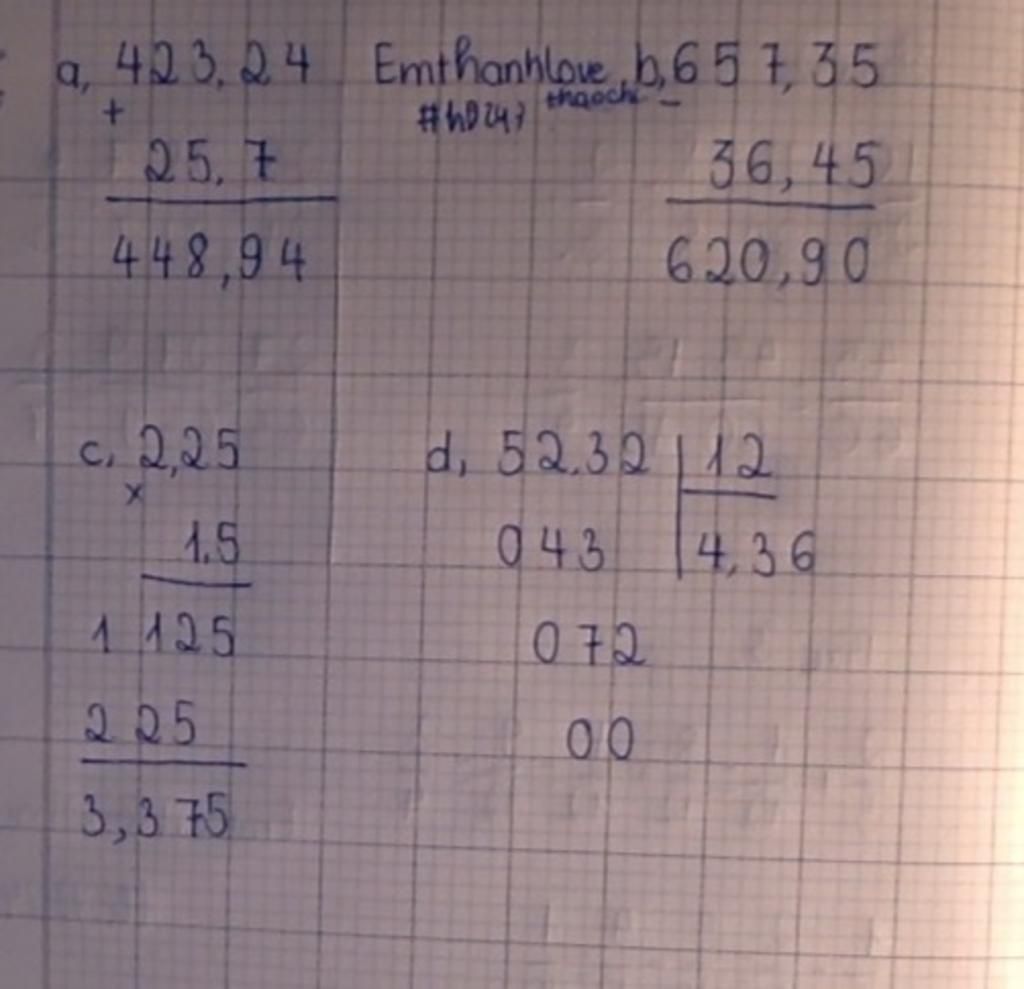 a, 423,24 Emthanhlove b, 657,35
+ #hD247 thaochi -
25,7 36,45
448,94 620,90
c, 2,25 d, 52,32 12
x
1,5 043 4,36
1 125 072
225 00
3,375